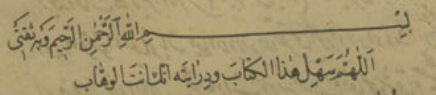 بِسْمِ اللهِ الرَّحْمٰنِ الرَّحِيمِ وَبِهِ ثِقَتِي
اَللّٰهُمَّ سَهِّلْ هٰذَا الكِتَابَ وَدِرَايَتَه اِنَّكَ اَنْتَ الوهَّاب